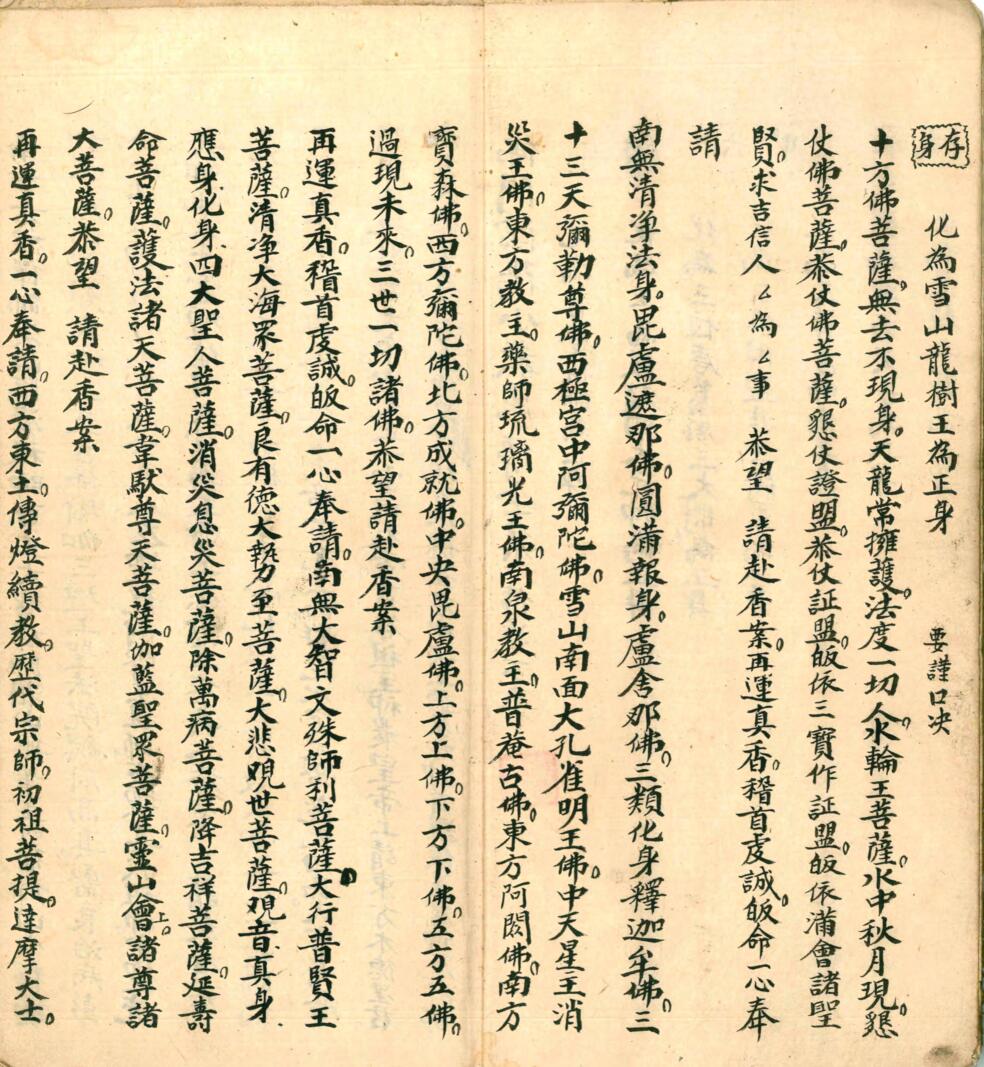 存身 化為雪山龍樹王為正身 要謹口决
十方佛菩薩。無去不現身。天龍常擁護。法度一切人。水輪王菩薩。水中秋月現。懇
仗佛菩薩。恭仗佛菩薩。懇仗證盟。恭仗証盟。皈依三寶作証盟。皈依蒲會諸聖
賢。求吉信人厶為厶事 恭望 請赴香案。再運真香。稽首虔誠。皈命一心奉
請
南無清净法身。毘盧遮那佛。圓满報身。盧舍那佛。三類化身釋迦牟佛。三
十三天彌勒尊佛。西極宫中阿彌陀佛。雪山南面大孔雀明王佛。中天星主消
災王佛。東方教主。藥師琉璃光王佛。南泉教主。普菴古佛。東方阿閦佛。南方
寳森佛。西方彌陀佛。北方成就佛。中央毘盧佛。上方上佛。下方下佛。五方五佛。
過現未來。三世一切諸佛。恭望請赴香案
再運真香。稽首虔誠。皈命一心奉請。南無大智文殊師利菩薩。大行普賢王
菩薩。清净大海眾菩薩。良有德大勢至菩薩。大悲覌世菩薩。覌音真身
應身化身。四大聖人菩薩。消災息災菩薩。除萬病菩薩。降吉祥菩薩。延壽
命菩薩。護法諸天菩薩。韋馱尊天菩薩。伽藍聖眾菩薩。靈山會上。諸尊諸
大菩薩。恭望 請赴香案
再運真香。一心奉請。西方東土。傳燈續教。歷代宗師。初祖菩提。達摩大士。